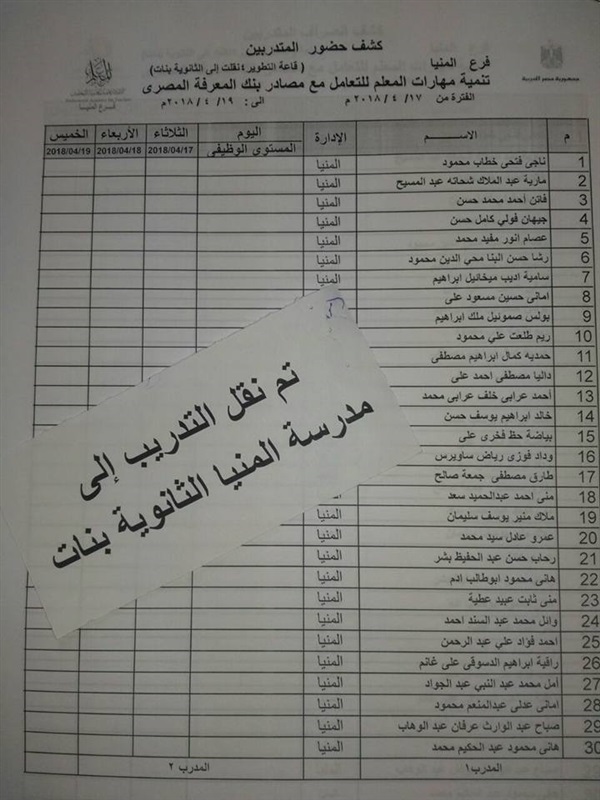 كشف حضور المتدربين
جمهورية مصر العربية
فرع المنيا
( قاعة التطوير ٤ نقلت إلى الثانوية بنات)
تنمية مهارات المعلم للتعامل مع مصادر بنك المعرفة المصرى
الفترة من ١٧ / ٤ / ٢٠١٨ م الى : ١٩ / ٤ / ٢٠١٨ م
م الاســـم الإدارة اليوم الثلاثاء الأربعاء الخميس
المستوى الوظيفى 2018/04/17 2018/04/18 2018/04/19
1 ناجى فتحى خطاب محمود المنيا
2 مارية عبد الملاك شحاته عبد المسيح المنيا
3 فاتن أحمد محمد حسن المنيا
4 جيهان فولي كامل حسن المنيا
5 عصام انور مفيد محمد المنيا
6 رشا حسن البنا محي الدين محمود المنيا
7 سامية اديب ميخائيل ابراهيم المنيا
8 امانى حسين مسعود على
9 بولس صموئيل ملك ابراهيم
10 ريم طلعت علي محمود
11 حمديه كمال ابراهيم مصطفى
12 داليا مصطفى احمد على
13 أحمد عرابى خلف عرابى محمد
14 خالد ابراهيم يوسف حسن
15 بياضة حظ فخرى على
16 وداد فوزى رياض ساويرس
17 طارق مصطفى جمعة صالح
18 منى احمد عبدالحميد سعد المنيا
19 ملاك منير يوسف سليمان المنيا
20 عمرو عادل سيد محمد المنيا
21 رحاب حسن عبد الحفيظ بشر المنيا
22 هانى محمود ابوطالب ادم المنيا
23 منى ثابت عبيد عطية المنيا
24 وائل محمد عبد السند احمد المنيا
25 احمد فؤاد علي عبد الرحمن المنيا
26 راقية ابراهيم الدسوقى على غانم المنيا
27 أمل محمد عبد النبي عبد الجواد المنيا
28 امانى عدلى عبدالمنعم محمود المنيا
29 صباح عبد الوارث عرفان عبد الوهاب المنيا
30 هانى محمود عبد الحكيم محمد المنيا
المدرب ١ المدرب ٢
تم نقل التدريب إلى
مدرسة المنيا الثانوية بنات